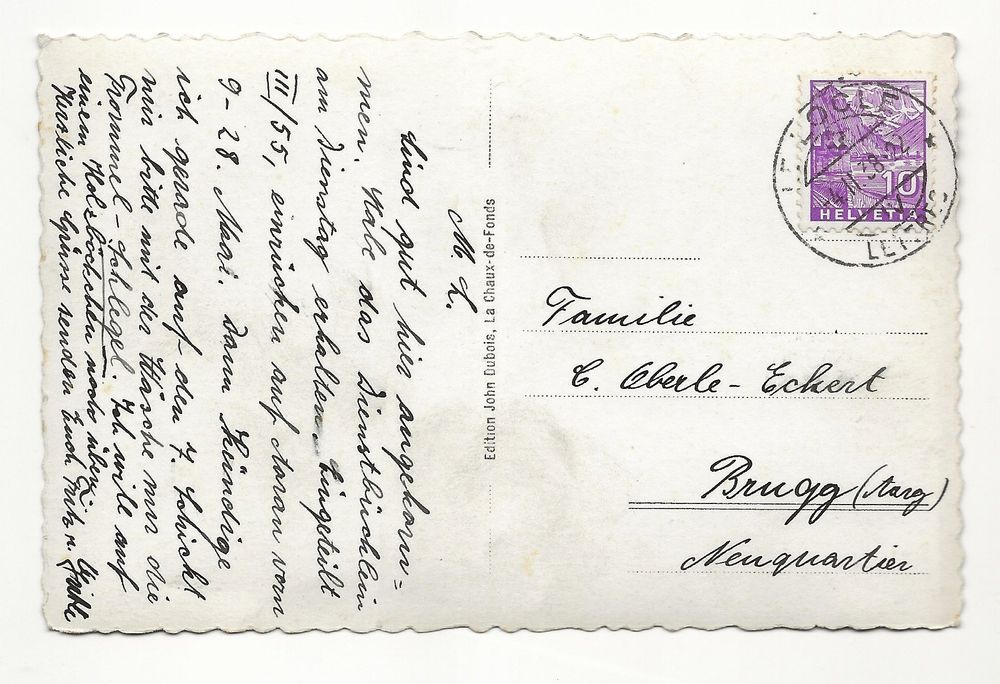 M. L.
Sind gut hier angekom=
men. Habe das Dienstbüchlein
am Dienstag erhalten. Eingeteilt
III/55, einrücken auf Aarau vom
9-28. Mai. Dann kündige
ich gerade auf den 7. Schicht
mir bitte mit der Wäsche nur die
Trommel-Schlegel. Ich will auf
einem Holzböckchen noch üben.
Herzliche Grüsse senden Euch
Edition John Dubois, La Chaux-de-Fonds
LE LOCLE
LETTRES
10
HELVETIA
Familie
C. Oberle-Eckert
Brugg (Aarg)
Neuquartier